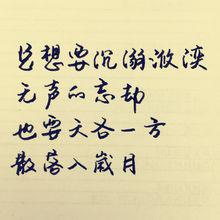 只想要沉溺潋滟
无声的忘却
也要天各一方
散落入歲月